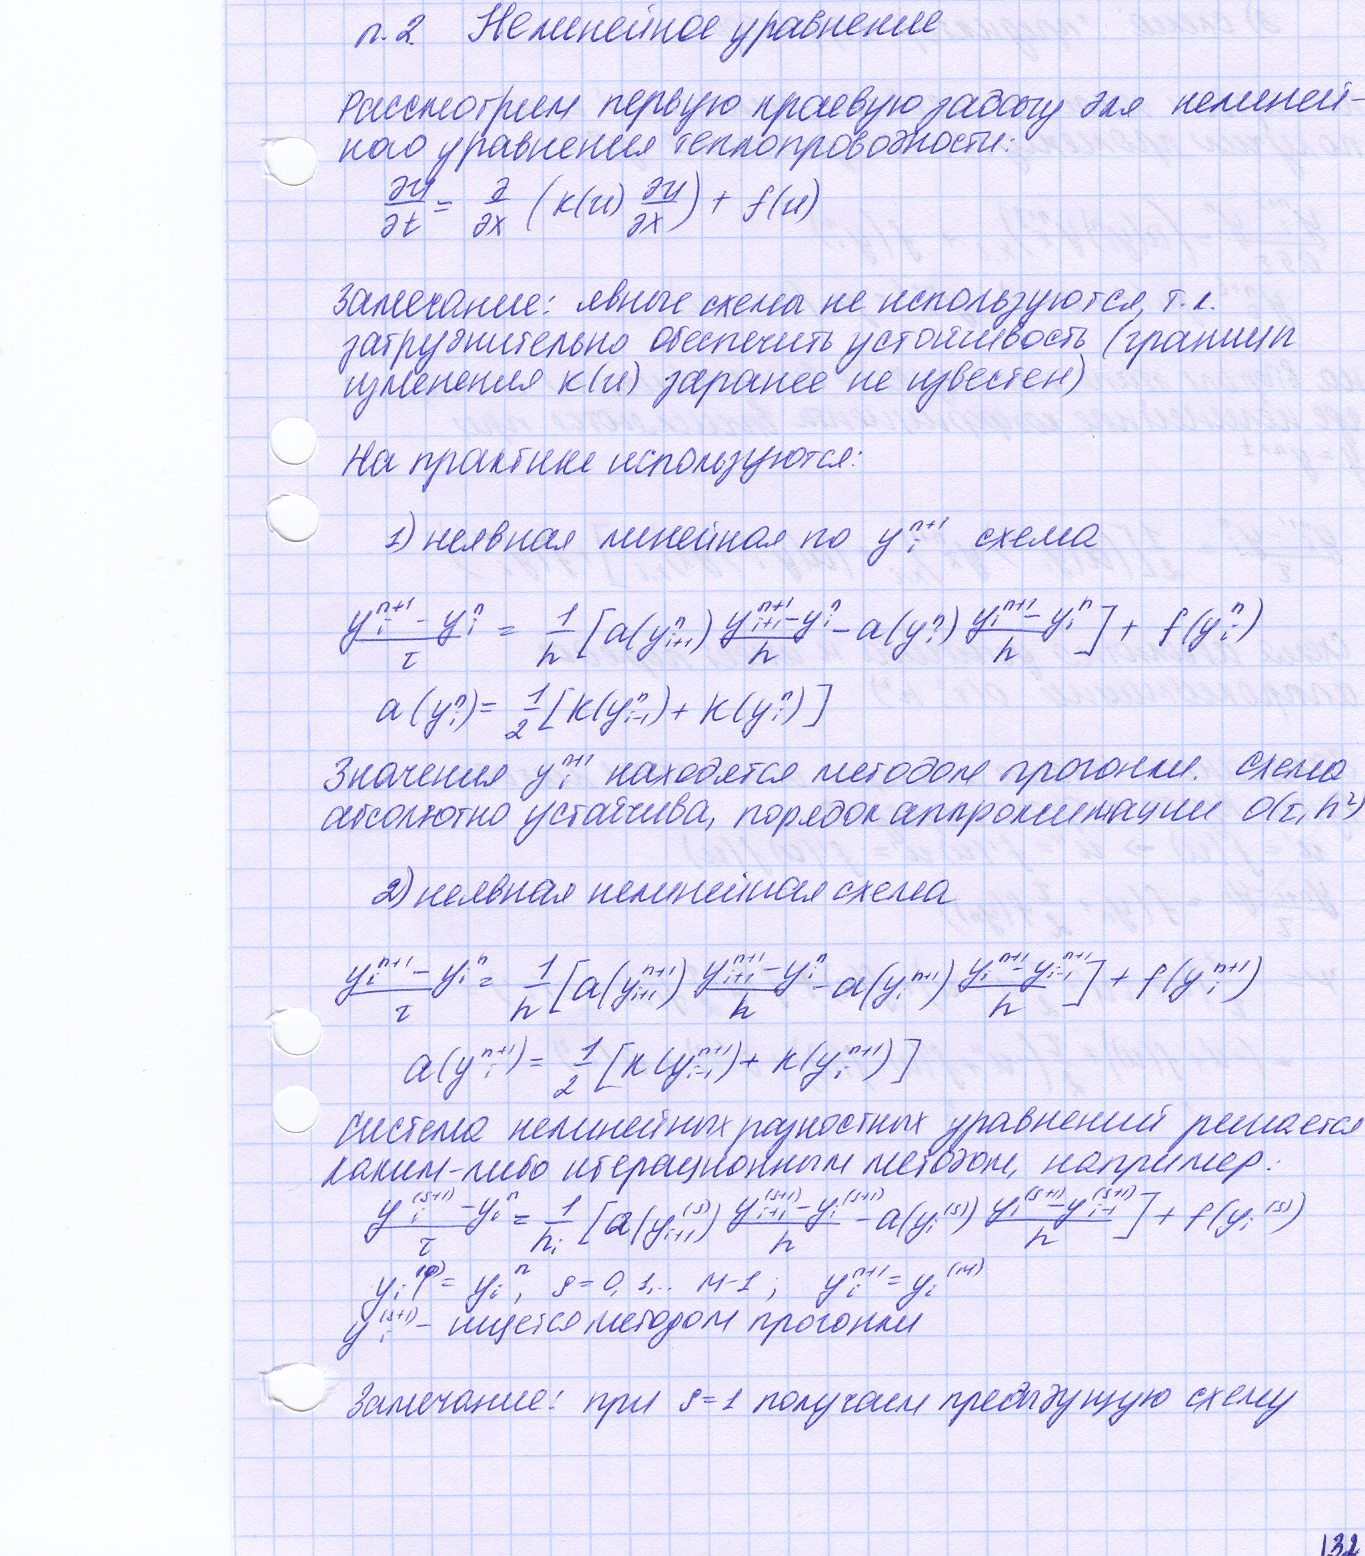 п.2. Нелинейное уравнение
Рассмотрим первую краевую задачу для нелиней-
ного уравнения теплопроводности:
∂u/∂t = ∂/∂x (k(u) ∂u/∂x) + f(u)
Замечание: явные схемы не используются, т.к.
затруднительно обеспечить устойчивость (границы
изменения k(u) заранее не известен)
На практике используются:
1) неявная линейная по y_i^{n+1} схема
(y_i^{n+1} - y_i^n)/τ = 1/h [a(y_{i+1}^n) (y_{i+1}^{n+1} - y_i^n)/h - a(y_i^n) (y_i^{n+1} - y_i^n)/h] + f(y_i^n)
a(y_i^n) = 1/2 [k(y_{i-1}^n) + k(y_i^n)]
Значения y_i^{n+1} находятся методом прогонки. Схема
абсолютно устойчива, порядок аппроксимации O(τ, h²)
2) неявная нелинейная схема
(y_i^{n+1} - y_i^n)/τ = 1/h [a(y_{i+1}^{n+1}) (y_{i+1}^{n+1} - y_i^n)/h - a(y_i^{n+1}) (y_i^{n+1} - y_{i-1}^{n+1})/h] + f(y_i^{n+1})
a(y_i^{n+1}) = 1/2 [k(y_{i-1}^{n+1}) + k(y_i^{n+1})]
Система нелинейных разностных уравнений решается
каким-либо итерационным методом, например:
(y_i^{(s+1)} - y_i^n)/τ = 1/h_i [a(y_{i+1}^{(s)}) (y_{i+1}^{(s+1)} - y_i^{(s+1)})/h - a(y_i^{(s)}) (y_i^{(s+1)} - y_{i-1}^{(s+1)})/h] + f(y_i^{(s)})
y_i^{(0)} = y_i^n, s = 0, 1,... M-1; y_i^{n+1} = y_i^{(M)}
y_i^{(s+1)} - ищется методом прогонки
Замечание: при s=1 получаем предыдущую схему
132